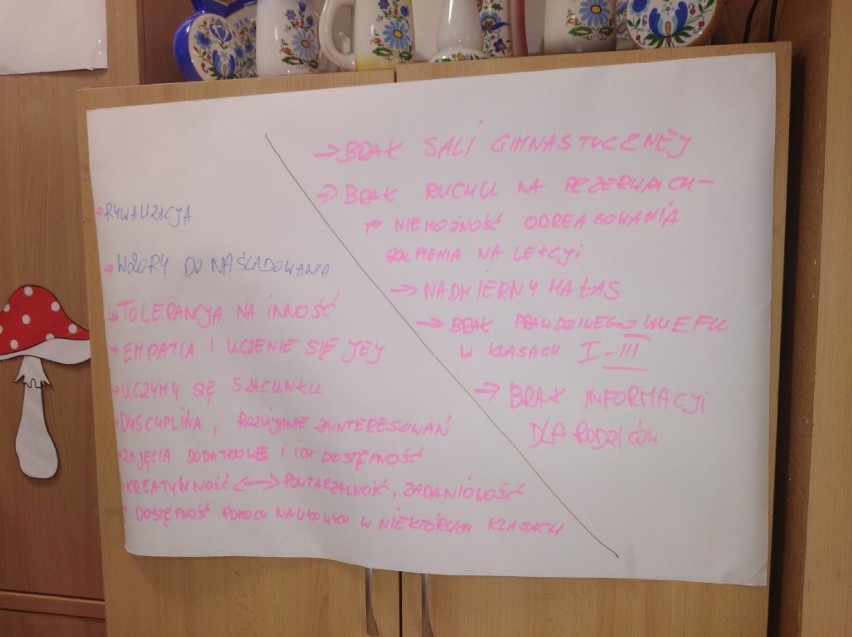 → RYWALIZACJA
→ WZORY DO NAŚLADOWANIA
→ TOLERANCJA NA INNOŚĆ
→ EMPATIA I UCZENIE SIĘ JEJ
→ UCZYMY SIĘ SZACUNKU
→ DYSCYPLINA, ROZWIJANIE ZAINTERESOWAŃ
→ ZAJĘCIA DODATKOWE I ICH DOSTĘPNOŚĆ
→ KREATYWNOŚĆ ↔ POWTARZALNOŚĆ, ZADANIOWOŚĆ
→ DOSTĘPNOŚĆ POMOCY NAUKOWYCH W NIEKTÓRYCH KLASACH
→ BRAK SALI GIMNASTYCZNEJ
→ BRAK RUCHU NA PRZERWACH -
→ NIEMOŻNOŚĆ ODREAGOWANIA
SKUPIENIA NA LEKCJI
→ NADMIERNY HAŁAS
→ BRAK PRAWDZIWEGO WUEFU
W KLASACH I-III
→ BRAK INFORMACJI
DLA RODZICÓW